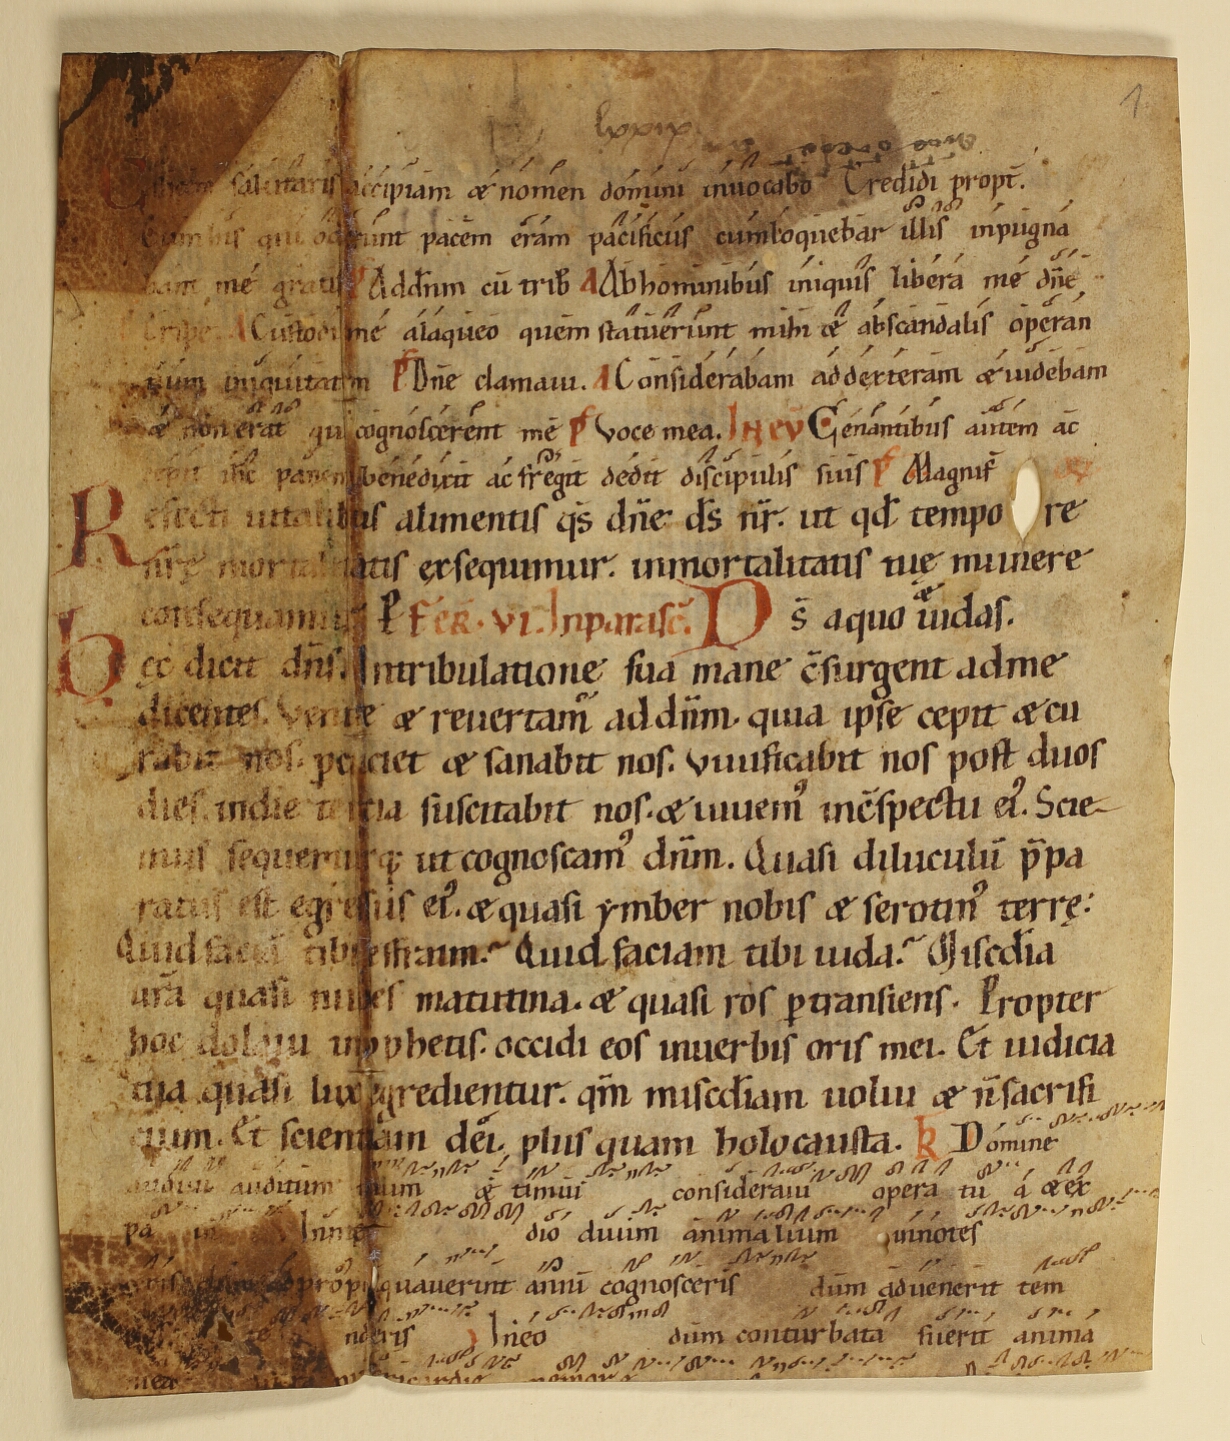 1
lxxix
Calicem salutaris accipiam & nomen domini inuocabo Credidi propt̄.
Cum his qui oderunt pacem eram pacificus cum loquebar illis inpugna
bant me gratis P Ad dn̄m cū trib A Ab hominibus iniquis libera me dn̄e
Eripe. A Custodi me a laqueo quem statuerunt mihi & ab scandalis operan
tium iniquitatem P Dn̄e clamaui. A Considerabam ad dexteram & uidebam
& non erat qui cognosceret me P Voce mea. IN EV Cenantibus autem ac
cepit ih̄c panem benedixit ac fregit dedit discipulis suis P Magnif̄
Refecti uitalibus alimentis q̄s dn̄e ds̄ nr̄. ut qd̄ tempore
nrę̄ mortalitatis exsequimur. inmortalitatis tuę munere
consequamur P FER. VI. In parasc̄. Ds̄ a quo & iudas.
hęc dicit dn̄s. In tribulatione sua mane c̄surgent ad me
dicentes. Venite & reuertam' ad dn̄m. quia ipse cepit & cu
rabit nos. percutiet & sanabit nos. Viuificabit nos post duos
dies. in die tertia suscitabit nos. & uiuem' in c̄spectu ei'. Scie-
mus sequemurq; ut cognoscam' dn̄m. Quasi diluculū p̄pa
ratus est egressus ei'. & quasi ymber nobis & serotin' terrę:
Quid faciā tibi effraim? Quid faciam tibi iuda? Misc̄dia
ur̄a quasi nubes matutina. & quasi ros p̱transiens. Propter
hoc dolaui in p̱phetis. occidi eos in uerbis oris mei. Et iudicia
tua quasi lux egredientur. qm̄ misc̄diam uolui & n̄ sacrifi
cium. Et scientiam dei. plus quam holocausta. R Domine
audiui auditum tuum & timui consideraui opera tu a & ex
pa in In me dio duum animalium innotes
ceris dum appropinquauerint anni cognosceris dum aduenerit tem
nderis In eo dum conturbata fuerit anima
mea